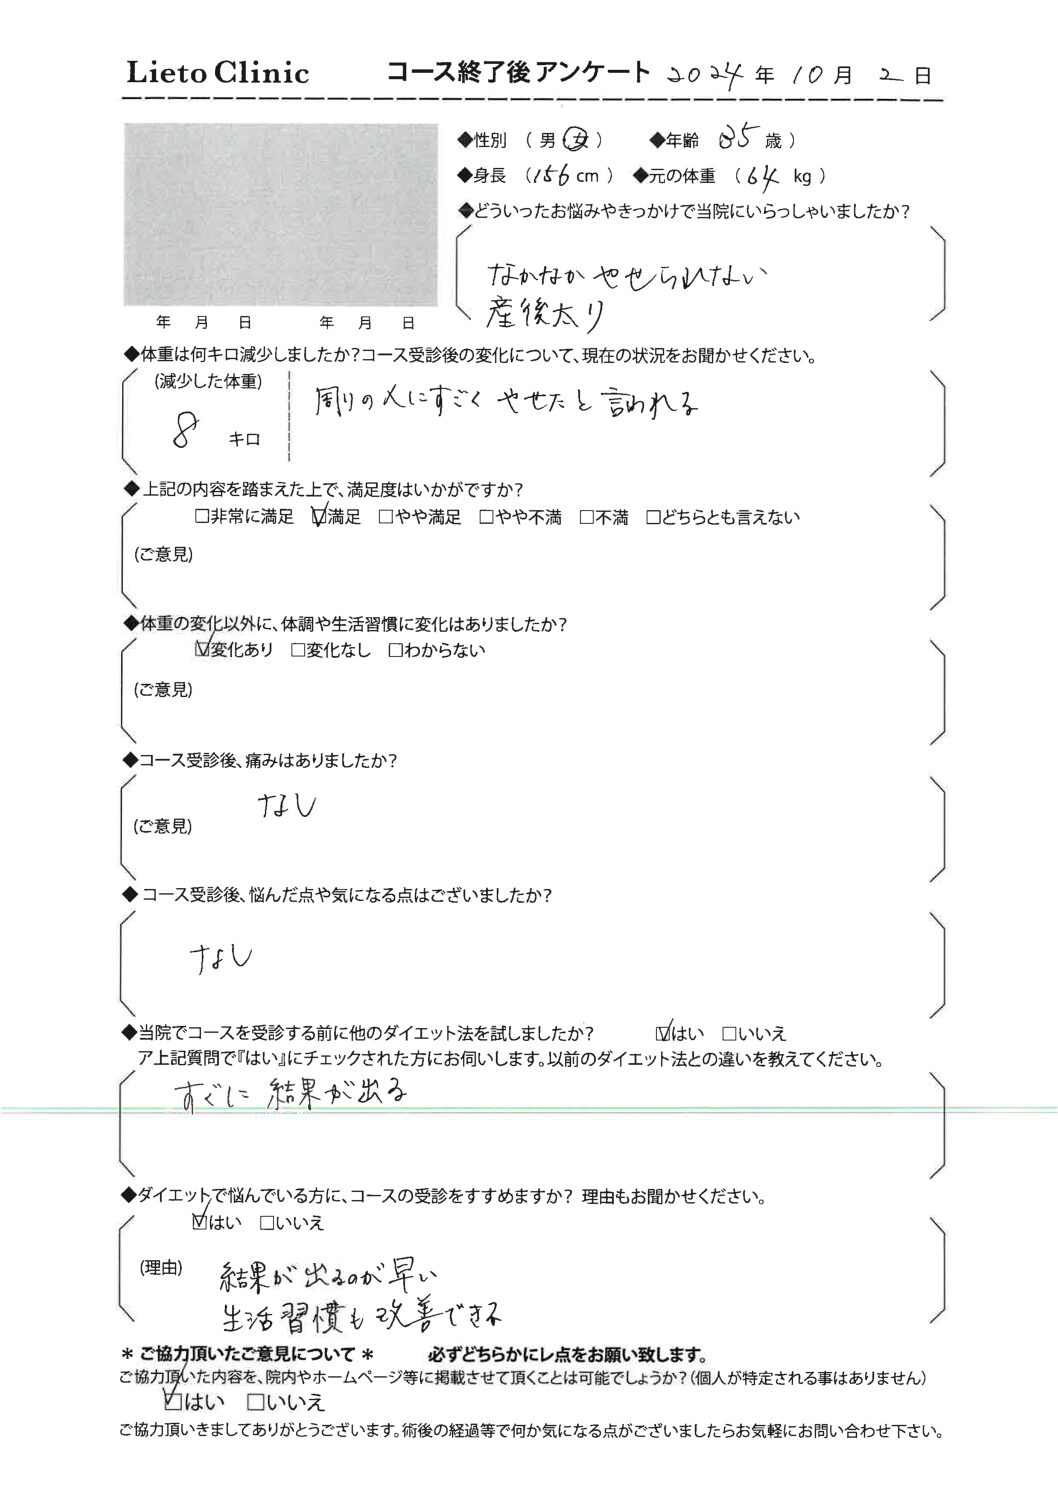 Lieto Clinic コース終了後アンケート 2024年 10月 2日
◆性別 （ 男・女 ） ◆年齢 （ 35 歳 ）
◆身長 （ 156 cm ） ◆元の体重 （ 64 kg ）
◆どういったお悩みやきっかけで当院にいらっしゃいましたか？
なかなか やせられない
産後太り
年 月 日 年 月 日
◆体重は何キロ減少しましたか？コース受診後の変化について、現在の状況をお聞かせください。
(減少した体重)
周りの人にすごく やせたと 言われる
8 キロ
◆ 上記の内容を踏まえた上で、満足度はいかがですか？
□非常に満足 ☑満足 □やや満足 □やや不満 □不満 □どちらとも言えない
(ご意見)
◆体重の変化以外に、体調や生活習慣に変化はありましたか？
☑変化あり □変化なし □わからない
(ご意見)
◆コース受診後、痛みはありましたか？
なし
(ご意見)
◆ コース受診後、悩んだ点や気になる点はございましたか？
なし
◆当院でコースを受診する前に他のダイエット法を試しましたか？ ☑はい □いいえ
ア上記質問で『はい』にチェックされた方にお伺いします。以前のダイエット法との違いを教えてください。
すぐに 結果が出る
◆ダイエットで悩んでいる方に、コースの受診をすすめますか？ 理由もお聞かせください。
☑はい □いいえ
(理由)
結果が出るのが早い
生活習慣も改善できる
＊ ご協力頂いたご意見について ＊ 必ずどちらかにレ点をお願い致します。
ご協力頂いた内容を、院内やホームページ等に掲載させて頂くことは可能でしょうか？(個人が特定される事はありません)
☑はい □いいえ
ご協力頂きましてありがとうございます。術後の経過等で何か気になる点がございましたらお気軽にお問い合わせ下さい。